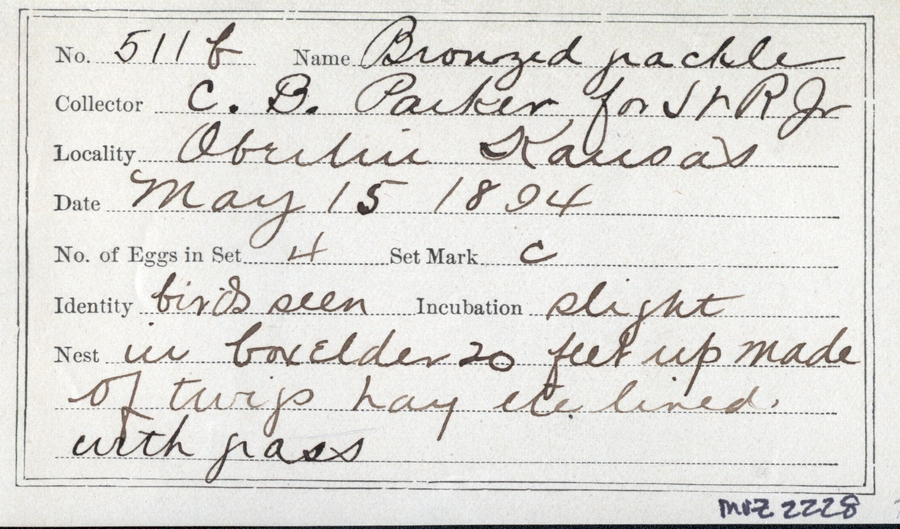 No. 511b Name Bronzed grackle
Collector C. B. Parker for J H R Jr
Locality Oberlin Kansas
Date May 15 1894
No. of Eggs in Set 4 Set Mark C
Identity birds seen Incubation slight
Nest in boxElder 20 feet up made
of twigs hay etc lined.
with grass
MVZ 2228